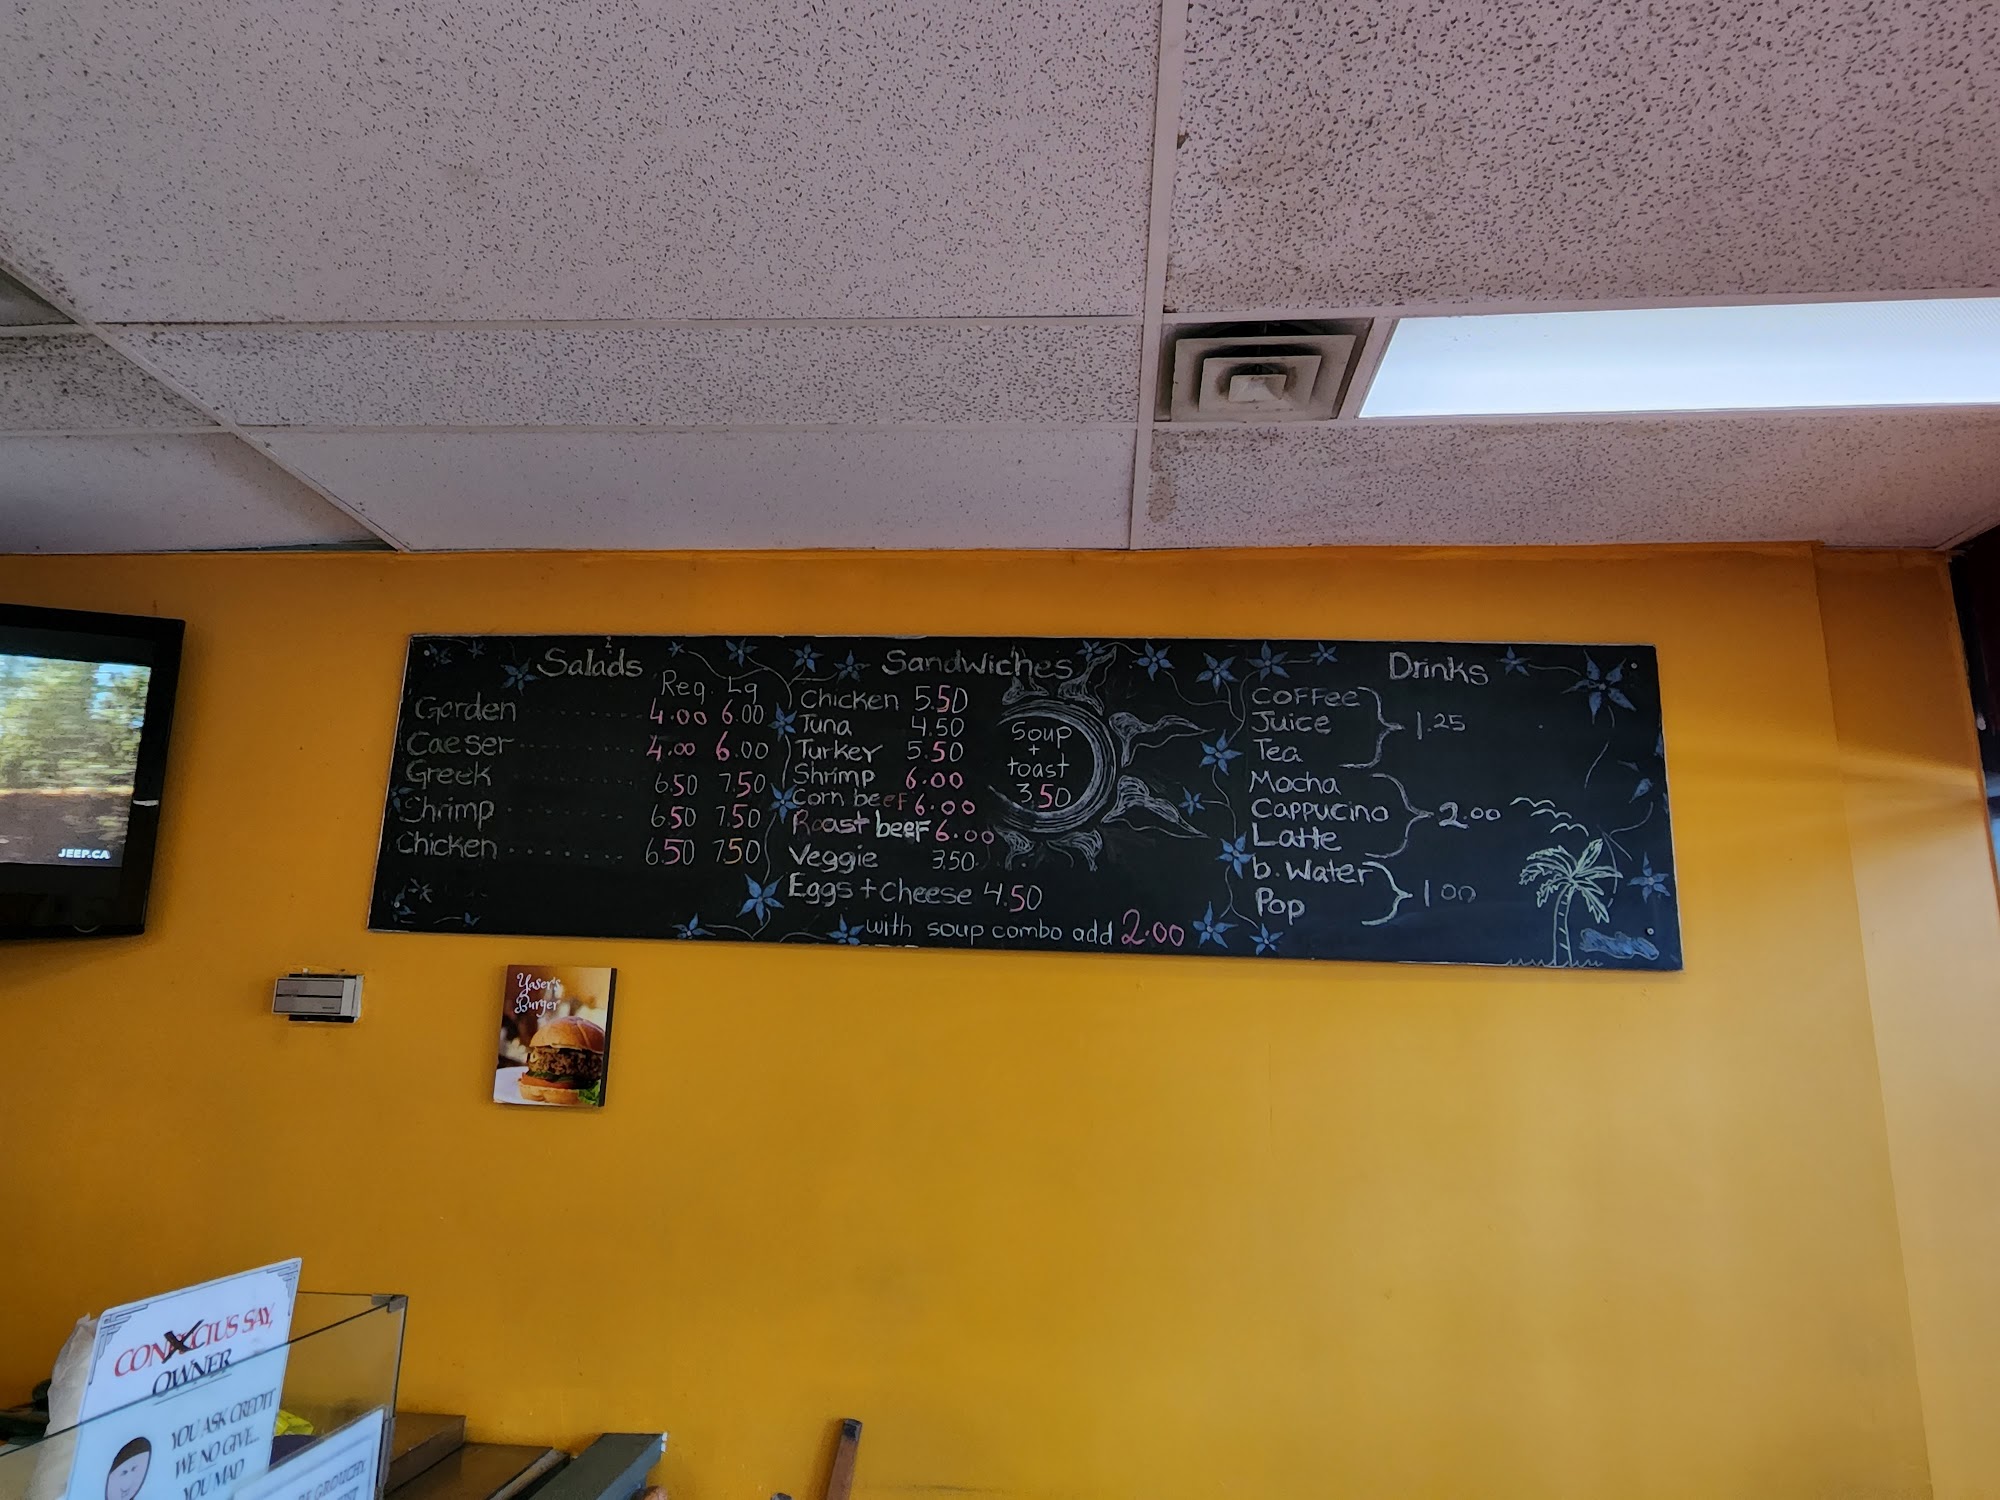 Salads
Reg. Lg
Garden 4.00 6.00
Caeser 4.00 6.00
Greek 6.50 7.50
Shrimp 6.50 7.50
Chicken 6.50 7.50
Sandwiches
Chicken 5.50
Tuna 4.50
Turkey 5.50
Shrimp 6.00
Corn beef 6.00
Roast beef 6.00
Veggie 3.50
Eggs + cheese 4.50
with soup combo add 2.00
Soup
+
toast
3.50
Drinks
Coffee
Juice
Tea
1.25
Mocha
Cappucino
Latte
2.00
b. Water
Pop
1.00
JEEP.CA
Yaser's
Burger
SAY,
OWNER
YOU ASK CREDIT
WE NO GIVE...
YOU MAD
GROUCHY